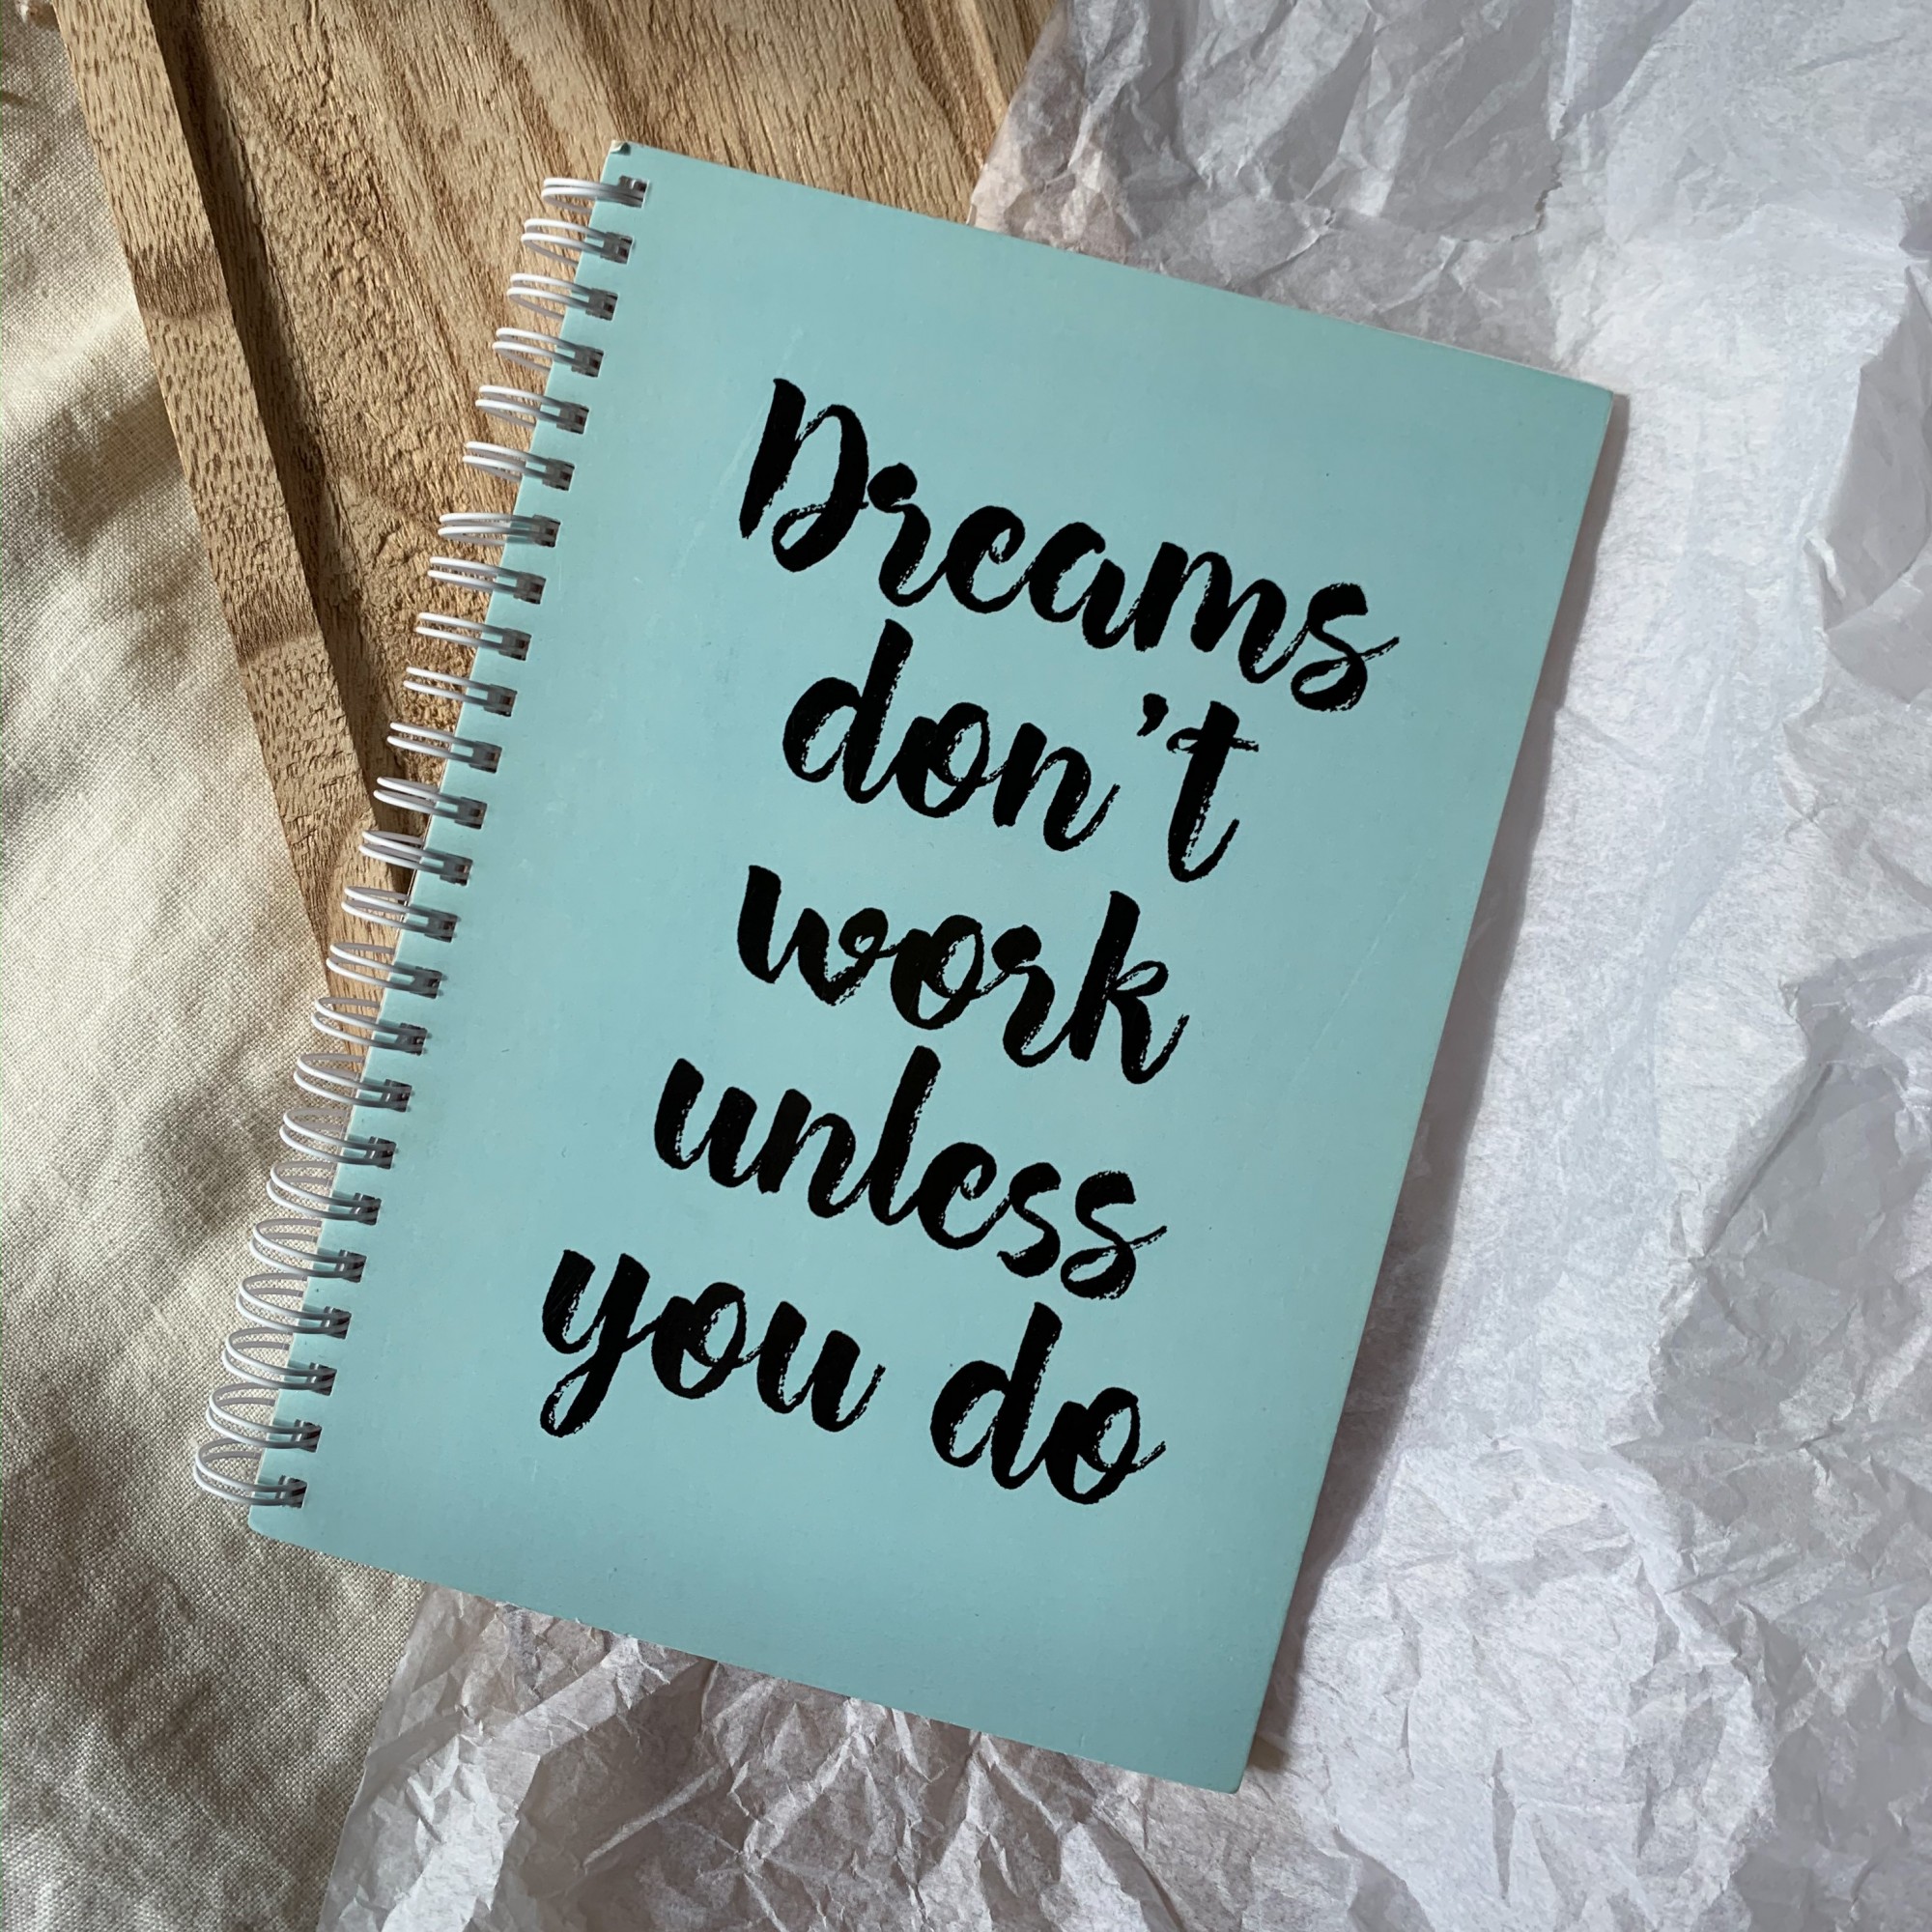 Dreams
don't
work
unless
you do